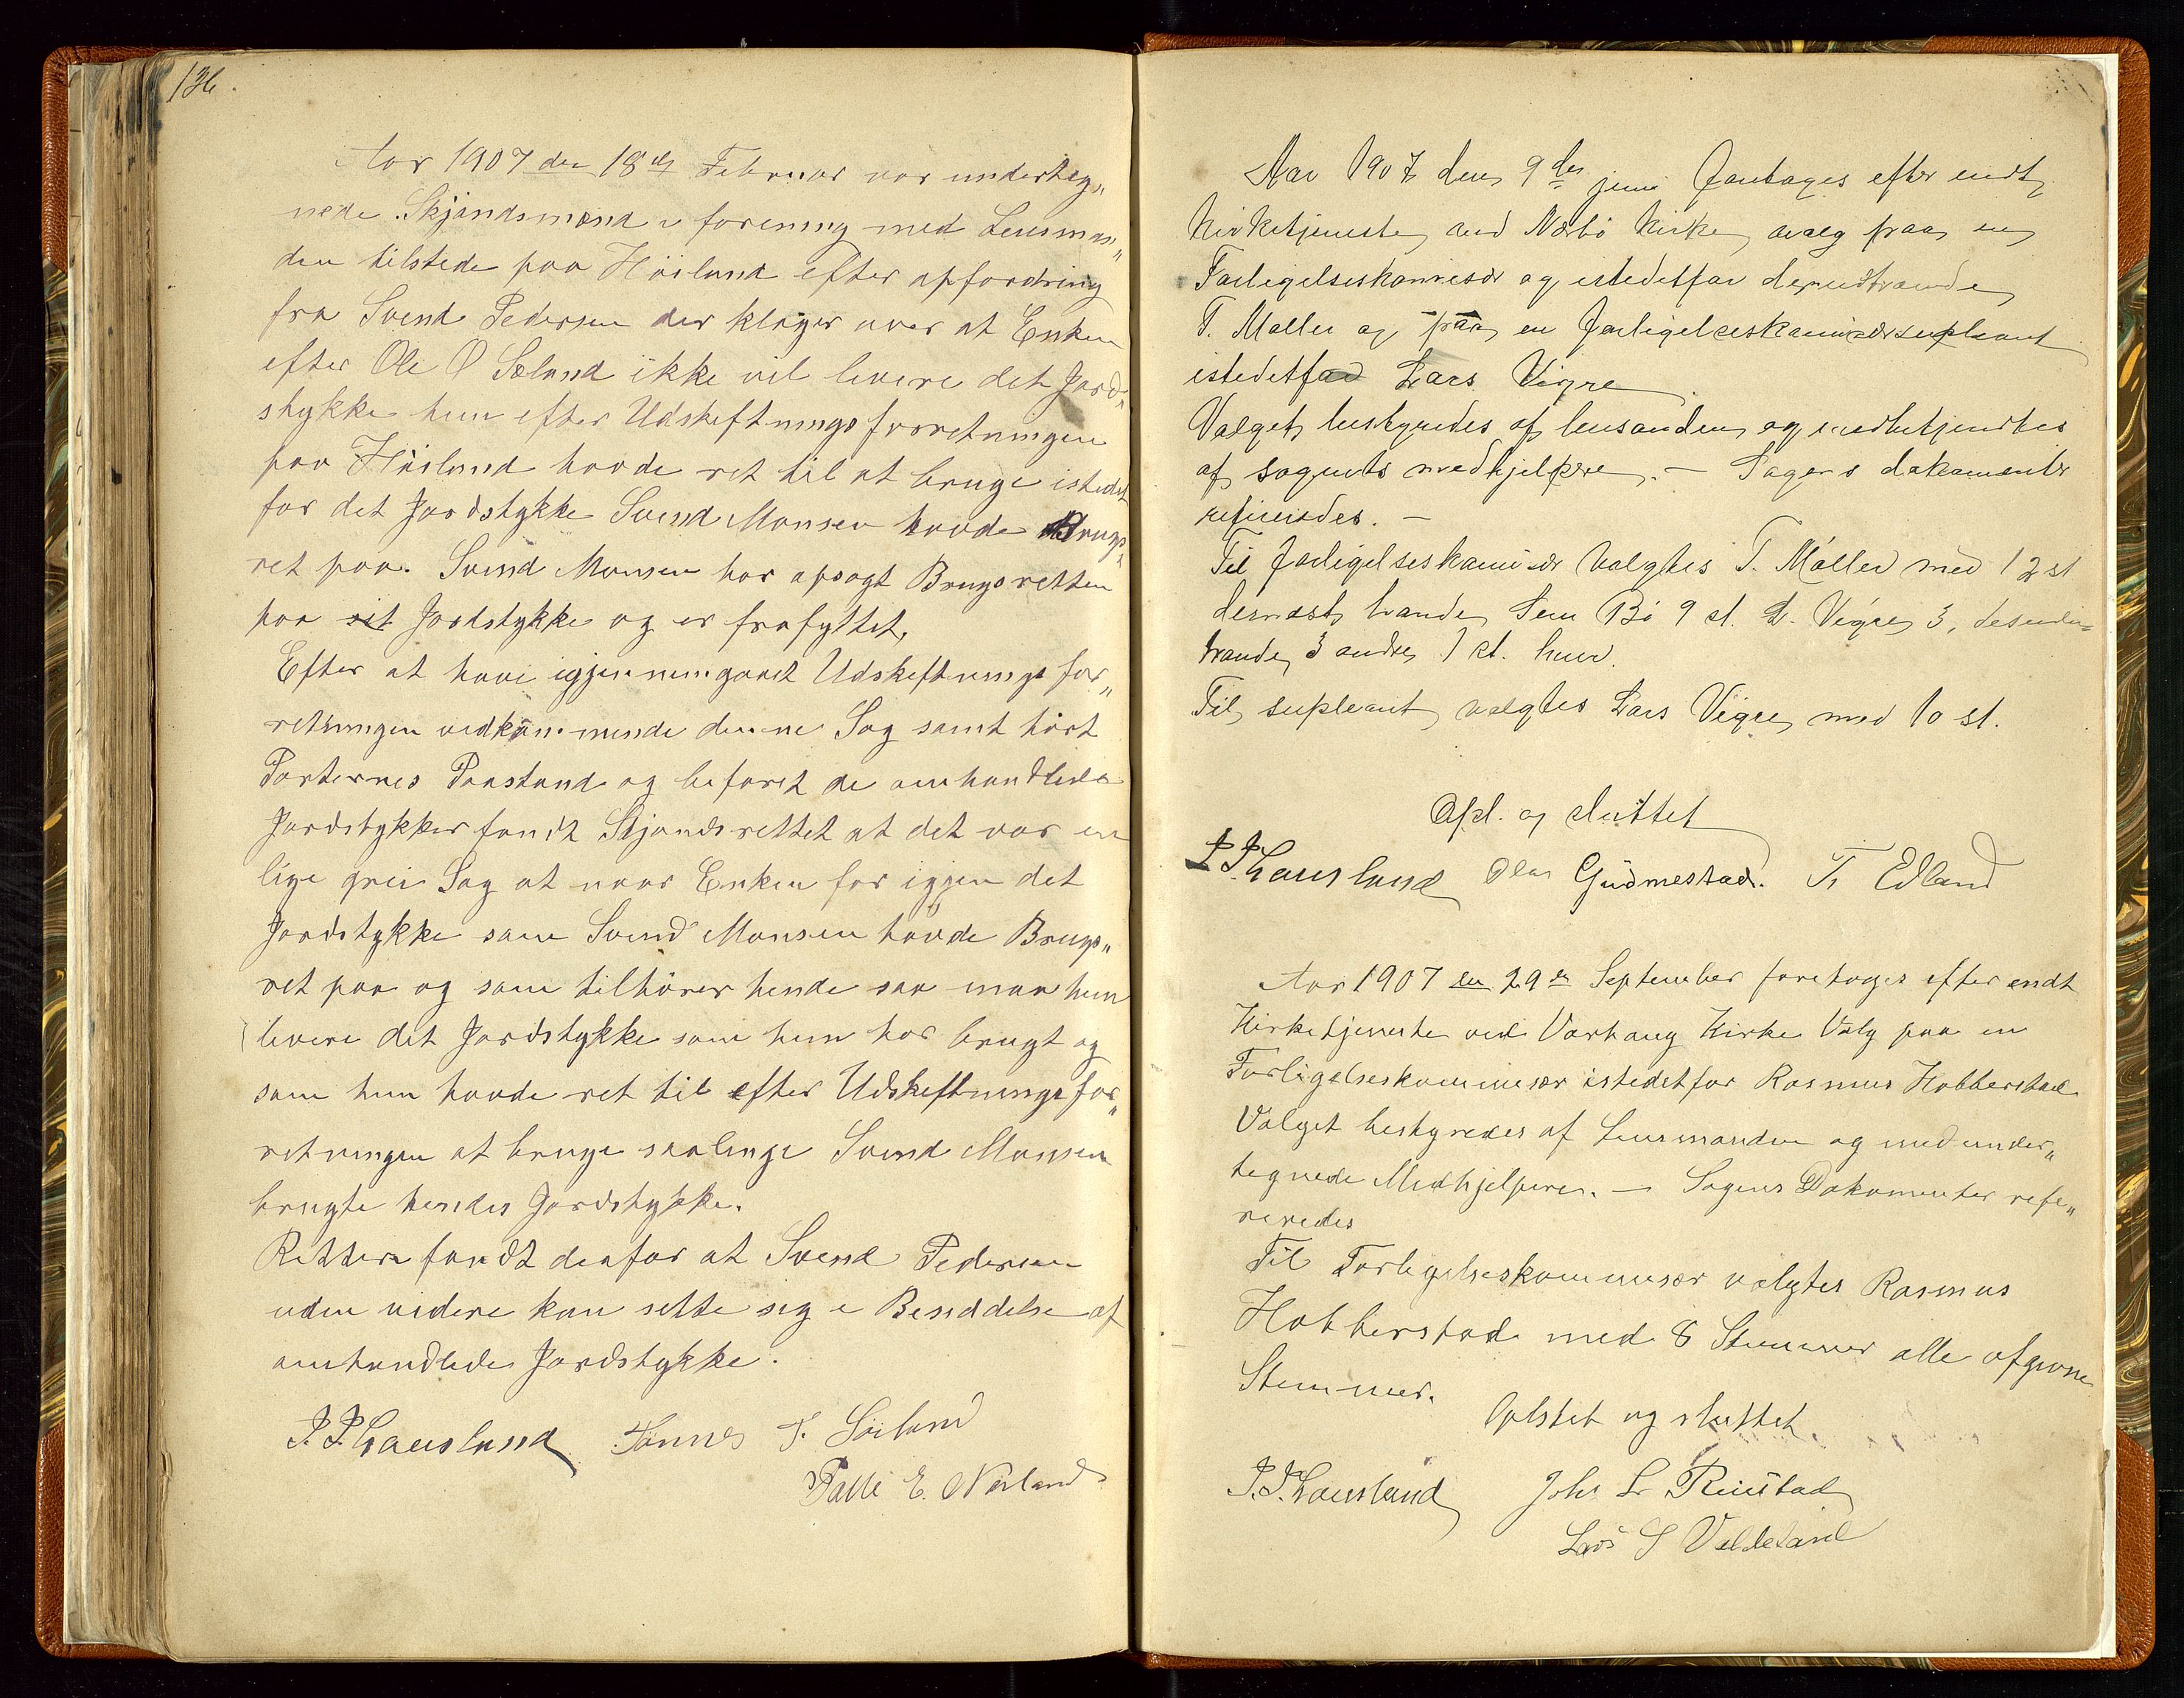 136.
Aar 1907 den 18de Februar var underteg„
nede Skjøndsmænd i forening med Lensman„
den tilstede paa Høiland efter opfordring
fra Svend Pedersen der klager over at Enken
efter Ole O Sæland ikke vil levere det Jord„
stykke hun efter Udskiftningsforretningen
paa Høiland havde ret til at bruge istedet
for det Jordstykke Svend Monsen havde Brugs„
ret paa. Svend Monsen har opsagt Brugsretten
paa sit Jordstykke og er fraflyttet.
Efter at have igjennemgaaet Udskiftningsfor„
retningen vedkommende denne Sag samt hørt
Parternes Paastand og befaret de omhandlede
Jordstykker fandt Skjøndsrettet at det var en
lige grei Sag at naar Enken for igjen det
Jordstykke som Svend Monsen havde Brugs„
ret paa og som tilhører hende saa maa hun
levere det Jordstykke som hun har brugt og
som hun havde ret til efter Udskiftningsfor„
retningen at bruge saalenge Svend Monsen
brugte hendes Jordstykke.
Retten fandt derfor at Svend Pedersen
uden videre kan sette sig i Besiddelse af
omhandlede Jordstykke.
J. J. Lauesland Tønnes T. Söiland
Palle E. Nærland
Aar 1907 den 9de juni foretages efter endt
kirketjeneste ved Nærbö kirke valg paa en
Forligelseskomisær og istedetfor den udtrædende
T. Møller og paa en forligelseskomisærsupleant
istedetfor Lars Vigre
Valget bestyredes af lensmanden og medbetjentes
af sognets medhjelpere. – Sagens dokumenter
refereredes. –
Til forligelseskomisær valgtes T. Møller med 12 st
dernæst havde Sem Bö 9 st. L. Vigre 3, desuden
havde 3 andre 1 st. hver.
Til supleant valgtes Lars Vigre med 10 st.
Opl. og sluttet
J. J. Lauesland Ola Gudmestad. T. Edland
Aar 1907 den 29de September foretoges efter endt
Kirketjeneste ved Varhaug Kirke Valg paa en
Forligelseskommisær istedetfor Rasmus Hobberstad
Valget bestyredes af Lensmanden og medunder„
tegnede Medhjelpere. – Sagens Dokumenter refe„
reredes
Til Forligelseskommisær valgtes Rasmus
Hobberstad med 8 Stemmer alle afgivne
Stemmer.
Oplæst og sluttet.
J. J. Lauesland Johs L Riustad
Lars S Veldeland